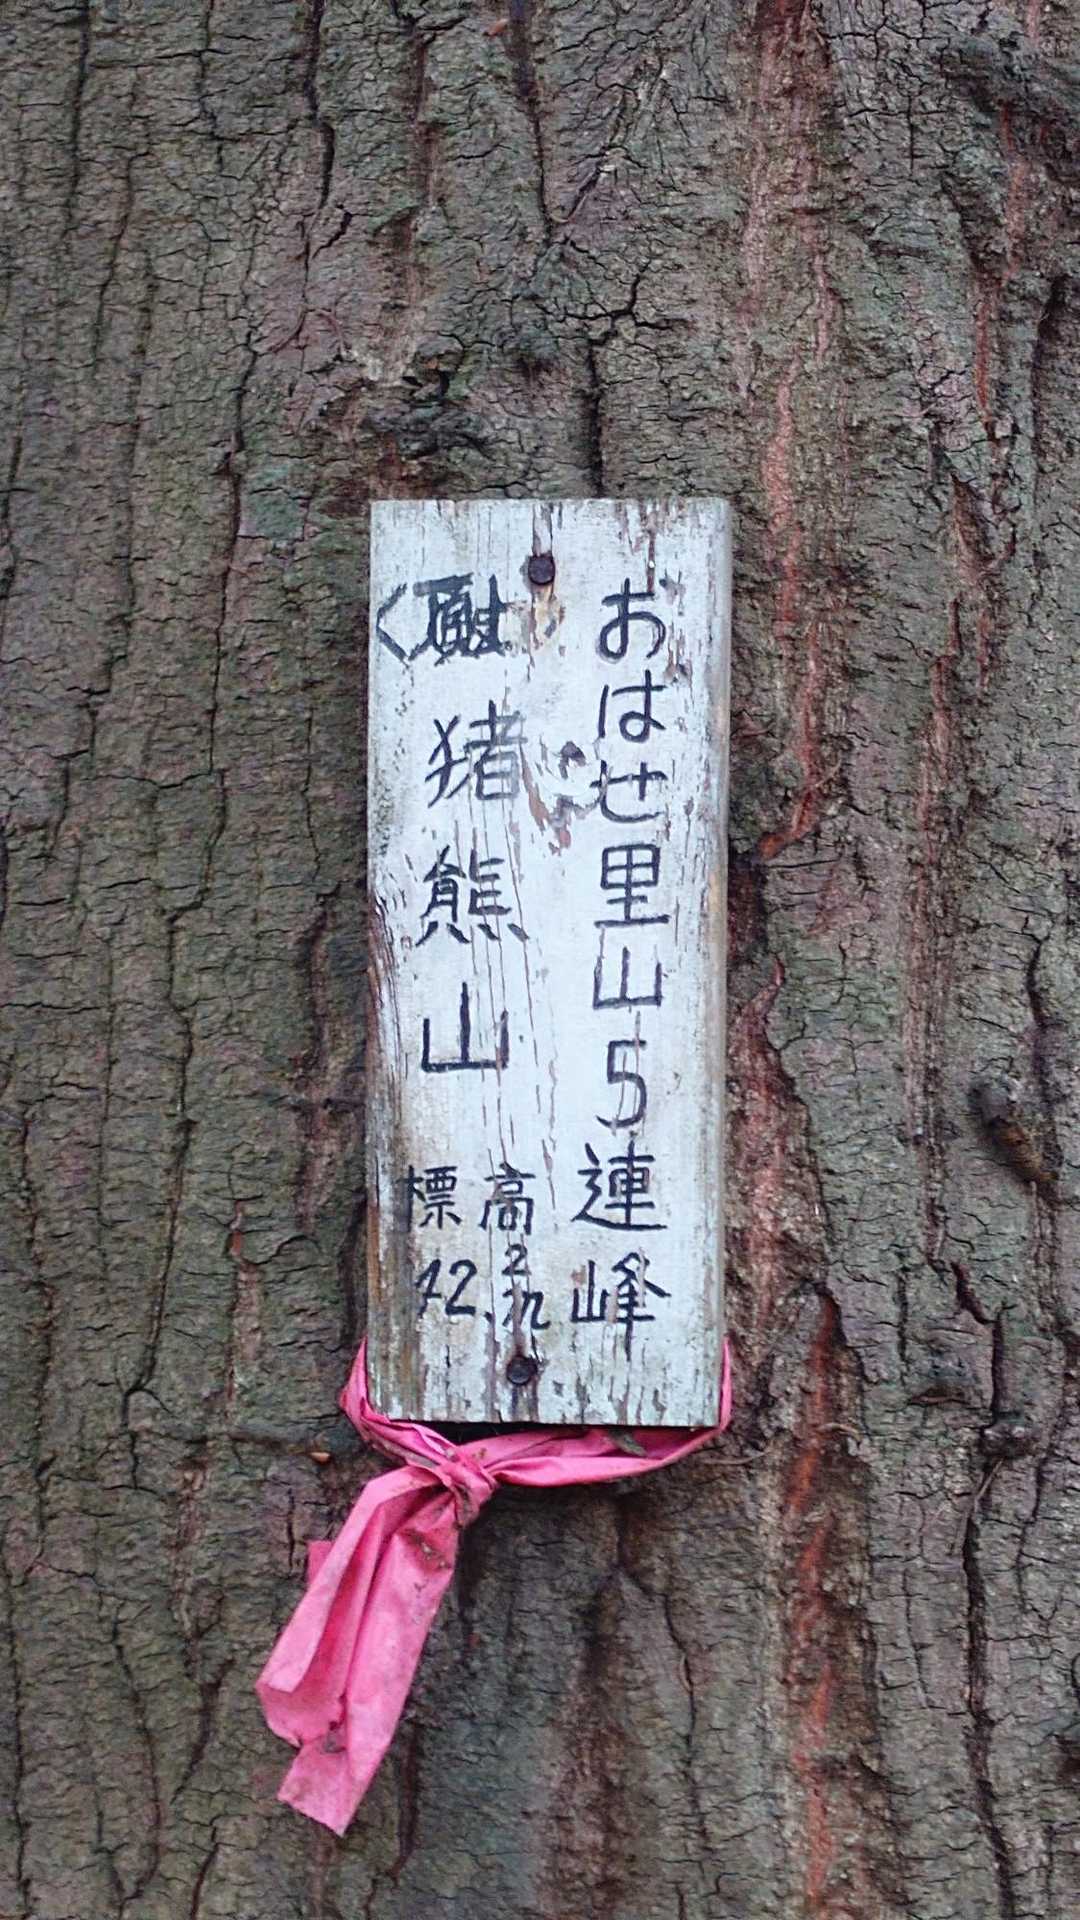 おはせ里山5連峰
猪熊山
標高
42.2m